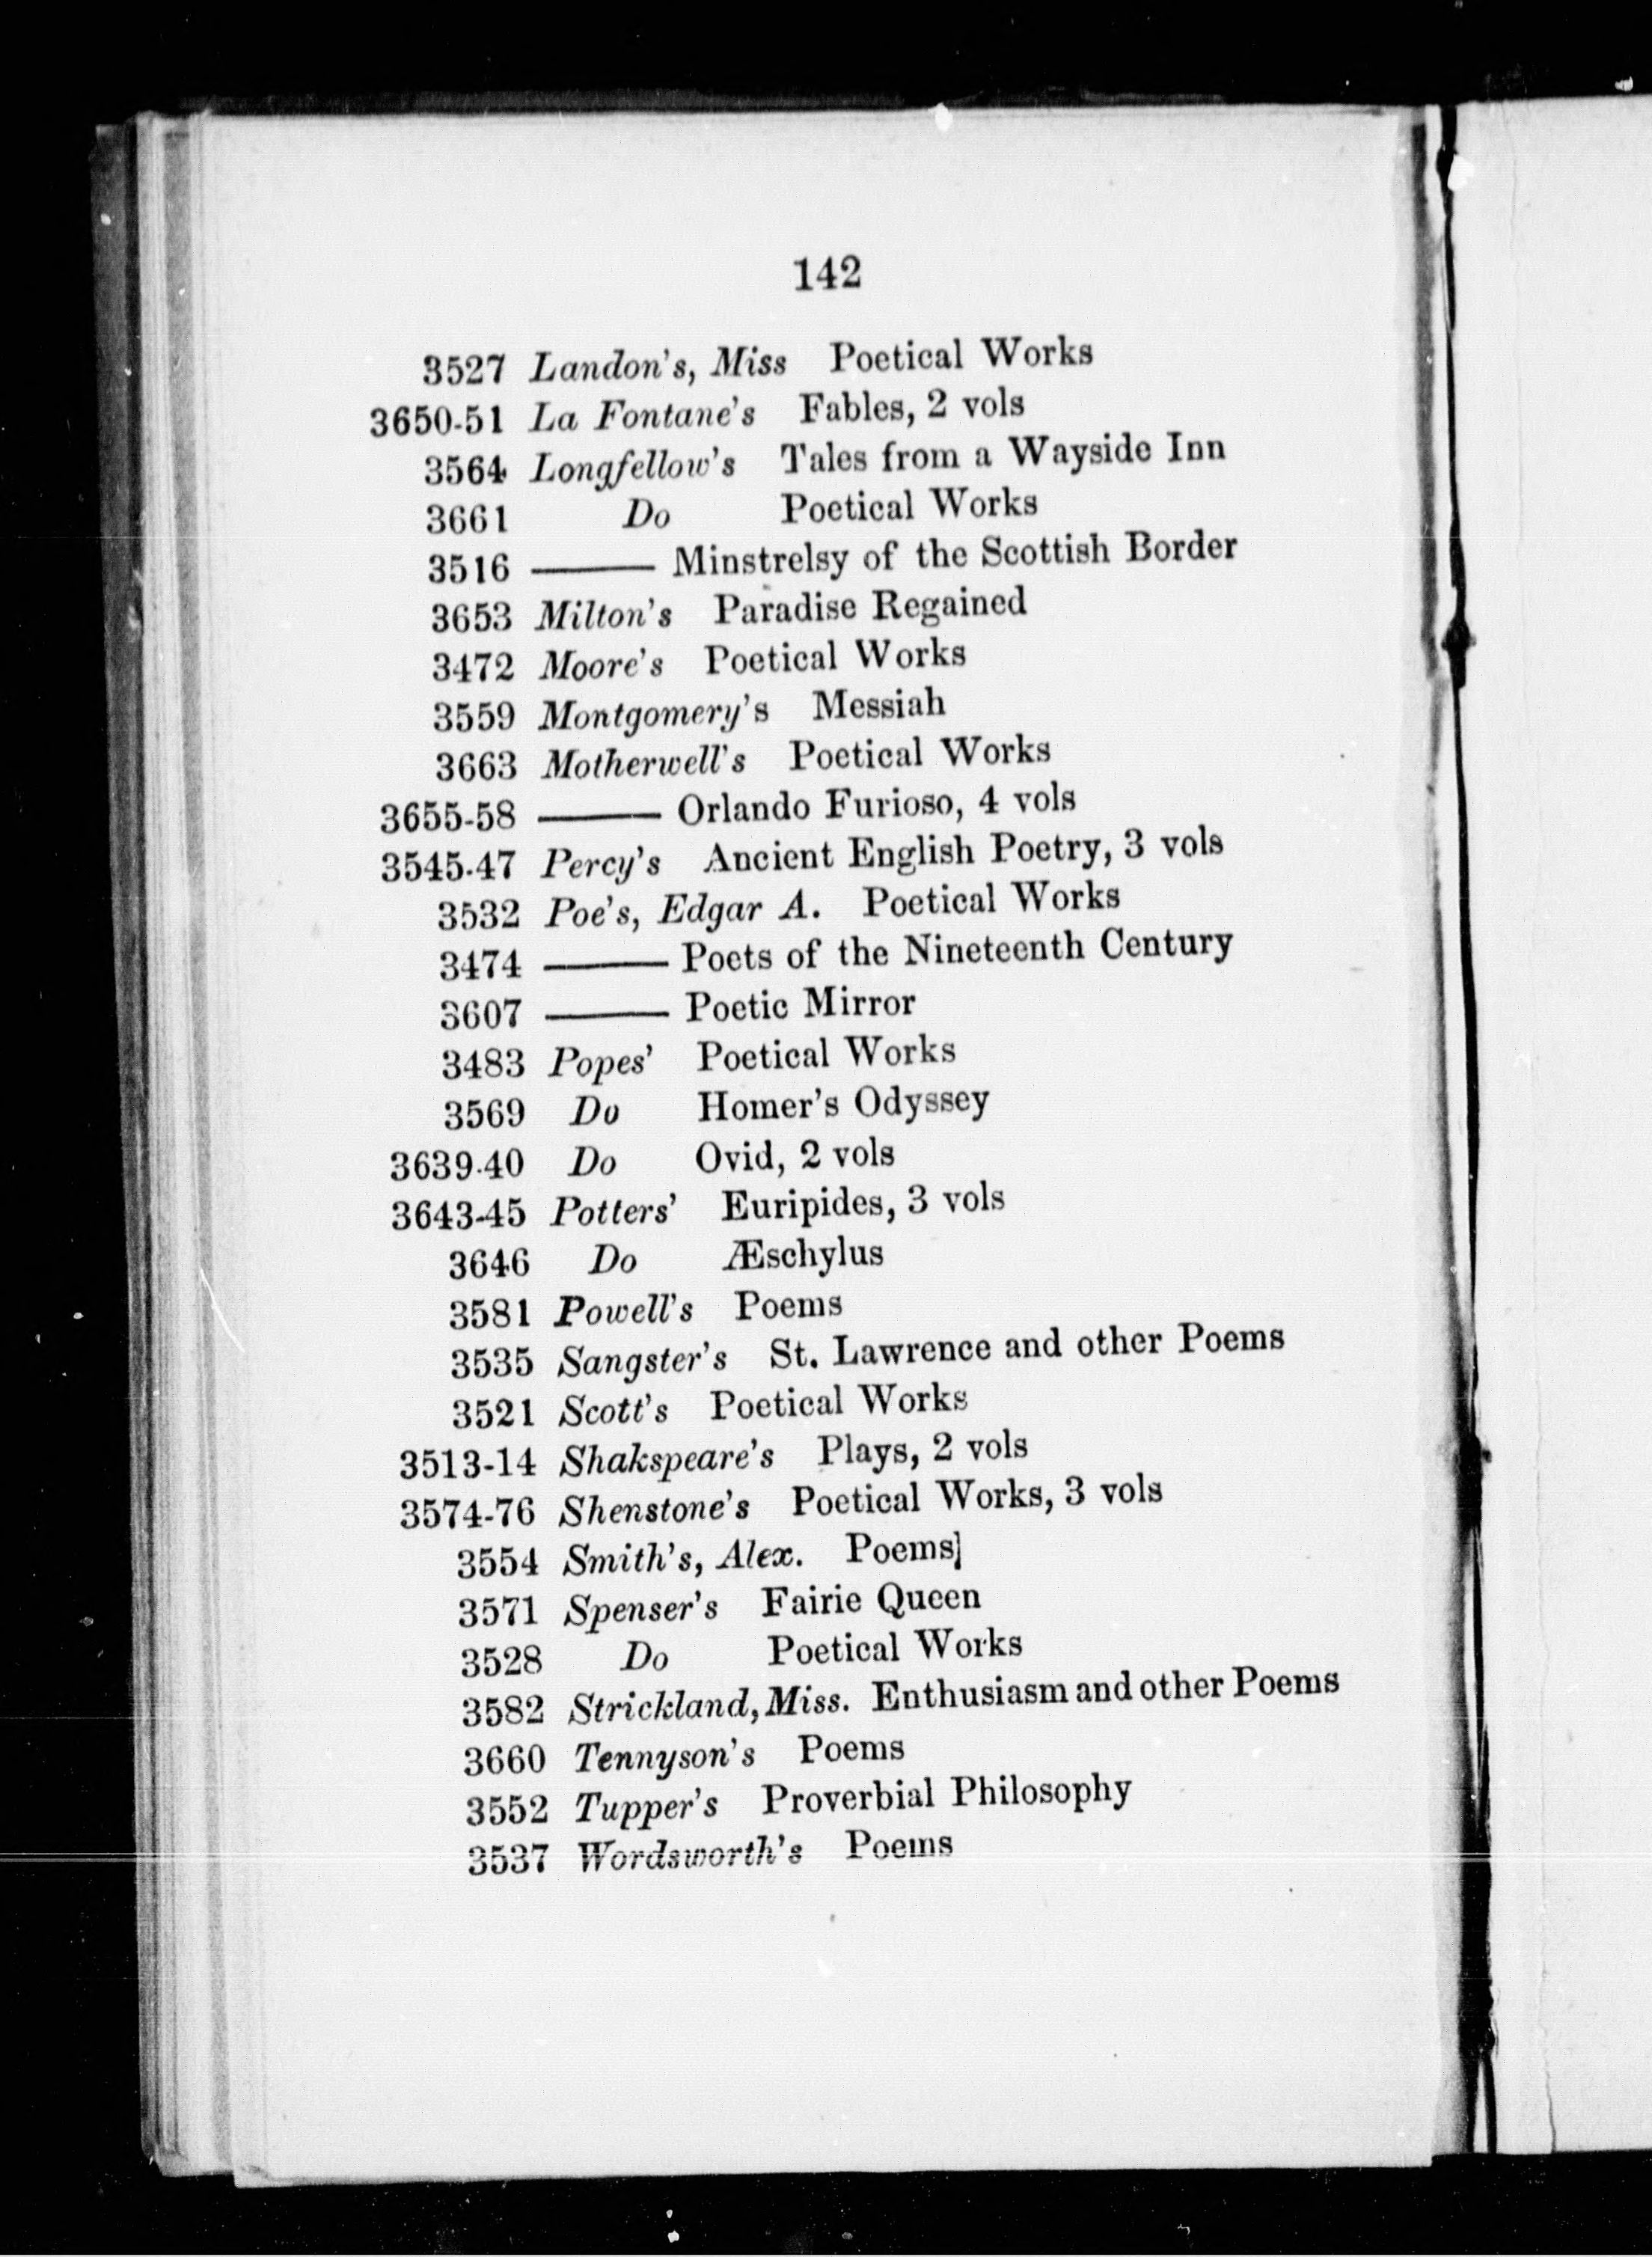 142
3527 Landon's, Miss Poetical Works
3650-51 La Fontane's Fables, 2 vols
3564 Longfellow's Tales from a Wayside Inn
3661 Do Poetical Works
3516 ——— Minstrelsy of the Scottish Border
3653 Milton's Paradise Regained
3472 Moore's Poetical Works
3559 Montgomery's Messiah
3663 Motherwell's Poetical Works
3655-58 ——— Orlando Furioso, 4 vols
3545-47 Percy's Ancient English Poetry, 3 vols
3532 Poe's, Edgar A. Poetical Works
3474 ——— Poets of the Nineteenth Century
3607 ——— Poetic Mirror
3483 Popes' Poetical Works
3569 Do Homer's Odyssey
3639-40 Do Ovid, 2 vols
3643-45 Potters' Euripides, 3 vols
3646 Do Æschylus
3581 Powell's Poems
3535 Sangster's St. Lawrence and other Poems
3521 Scott's Poetical Works
3513-14 Shakspeare's Plays, 2 vols
3574-76 Shenstone's Poetical Works, 3 vols
3554 Smith's, Alex. Poems]
3571 Spenser's Fairie Queen
3528 Do Poetical Works
3582 Strickland, Miss. Enthusiasm and other Poems
3660 Tennyson's Poems
3552 Tupper's Proverbial Philosophy
3537 Wordsworth's Poems